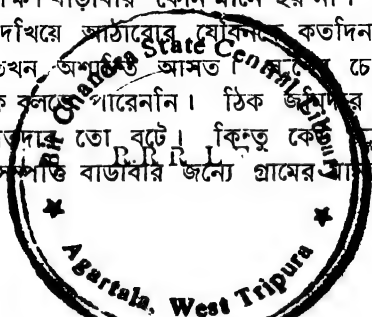 বাড়াবার কোন মানে হয় না।
দেখিয়ে আঠারোর যৌবনকে কতদিন
তখন অশান্তি আসত।
বলতে পারেননি। ঠিক জমিদার
তো বটে। কিন্তু
সম্পত্তি বাড়াবার জন্যে গ্রামের
Bir Chandra State Central Library
R.R.R.L.F.
Agartala, West Tripura